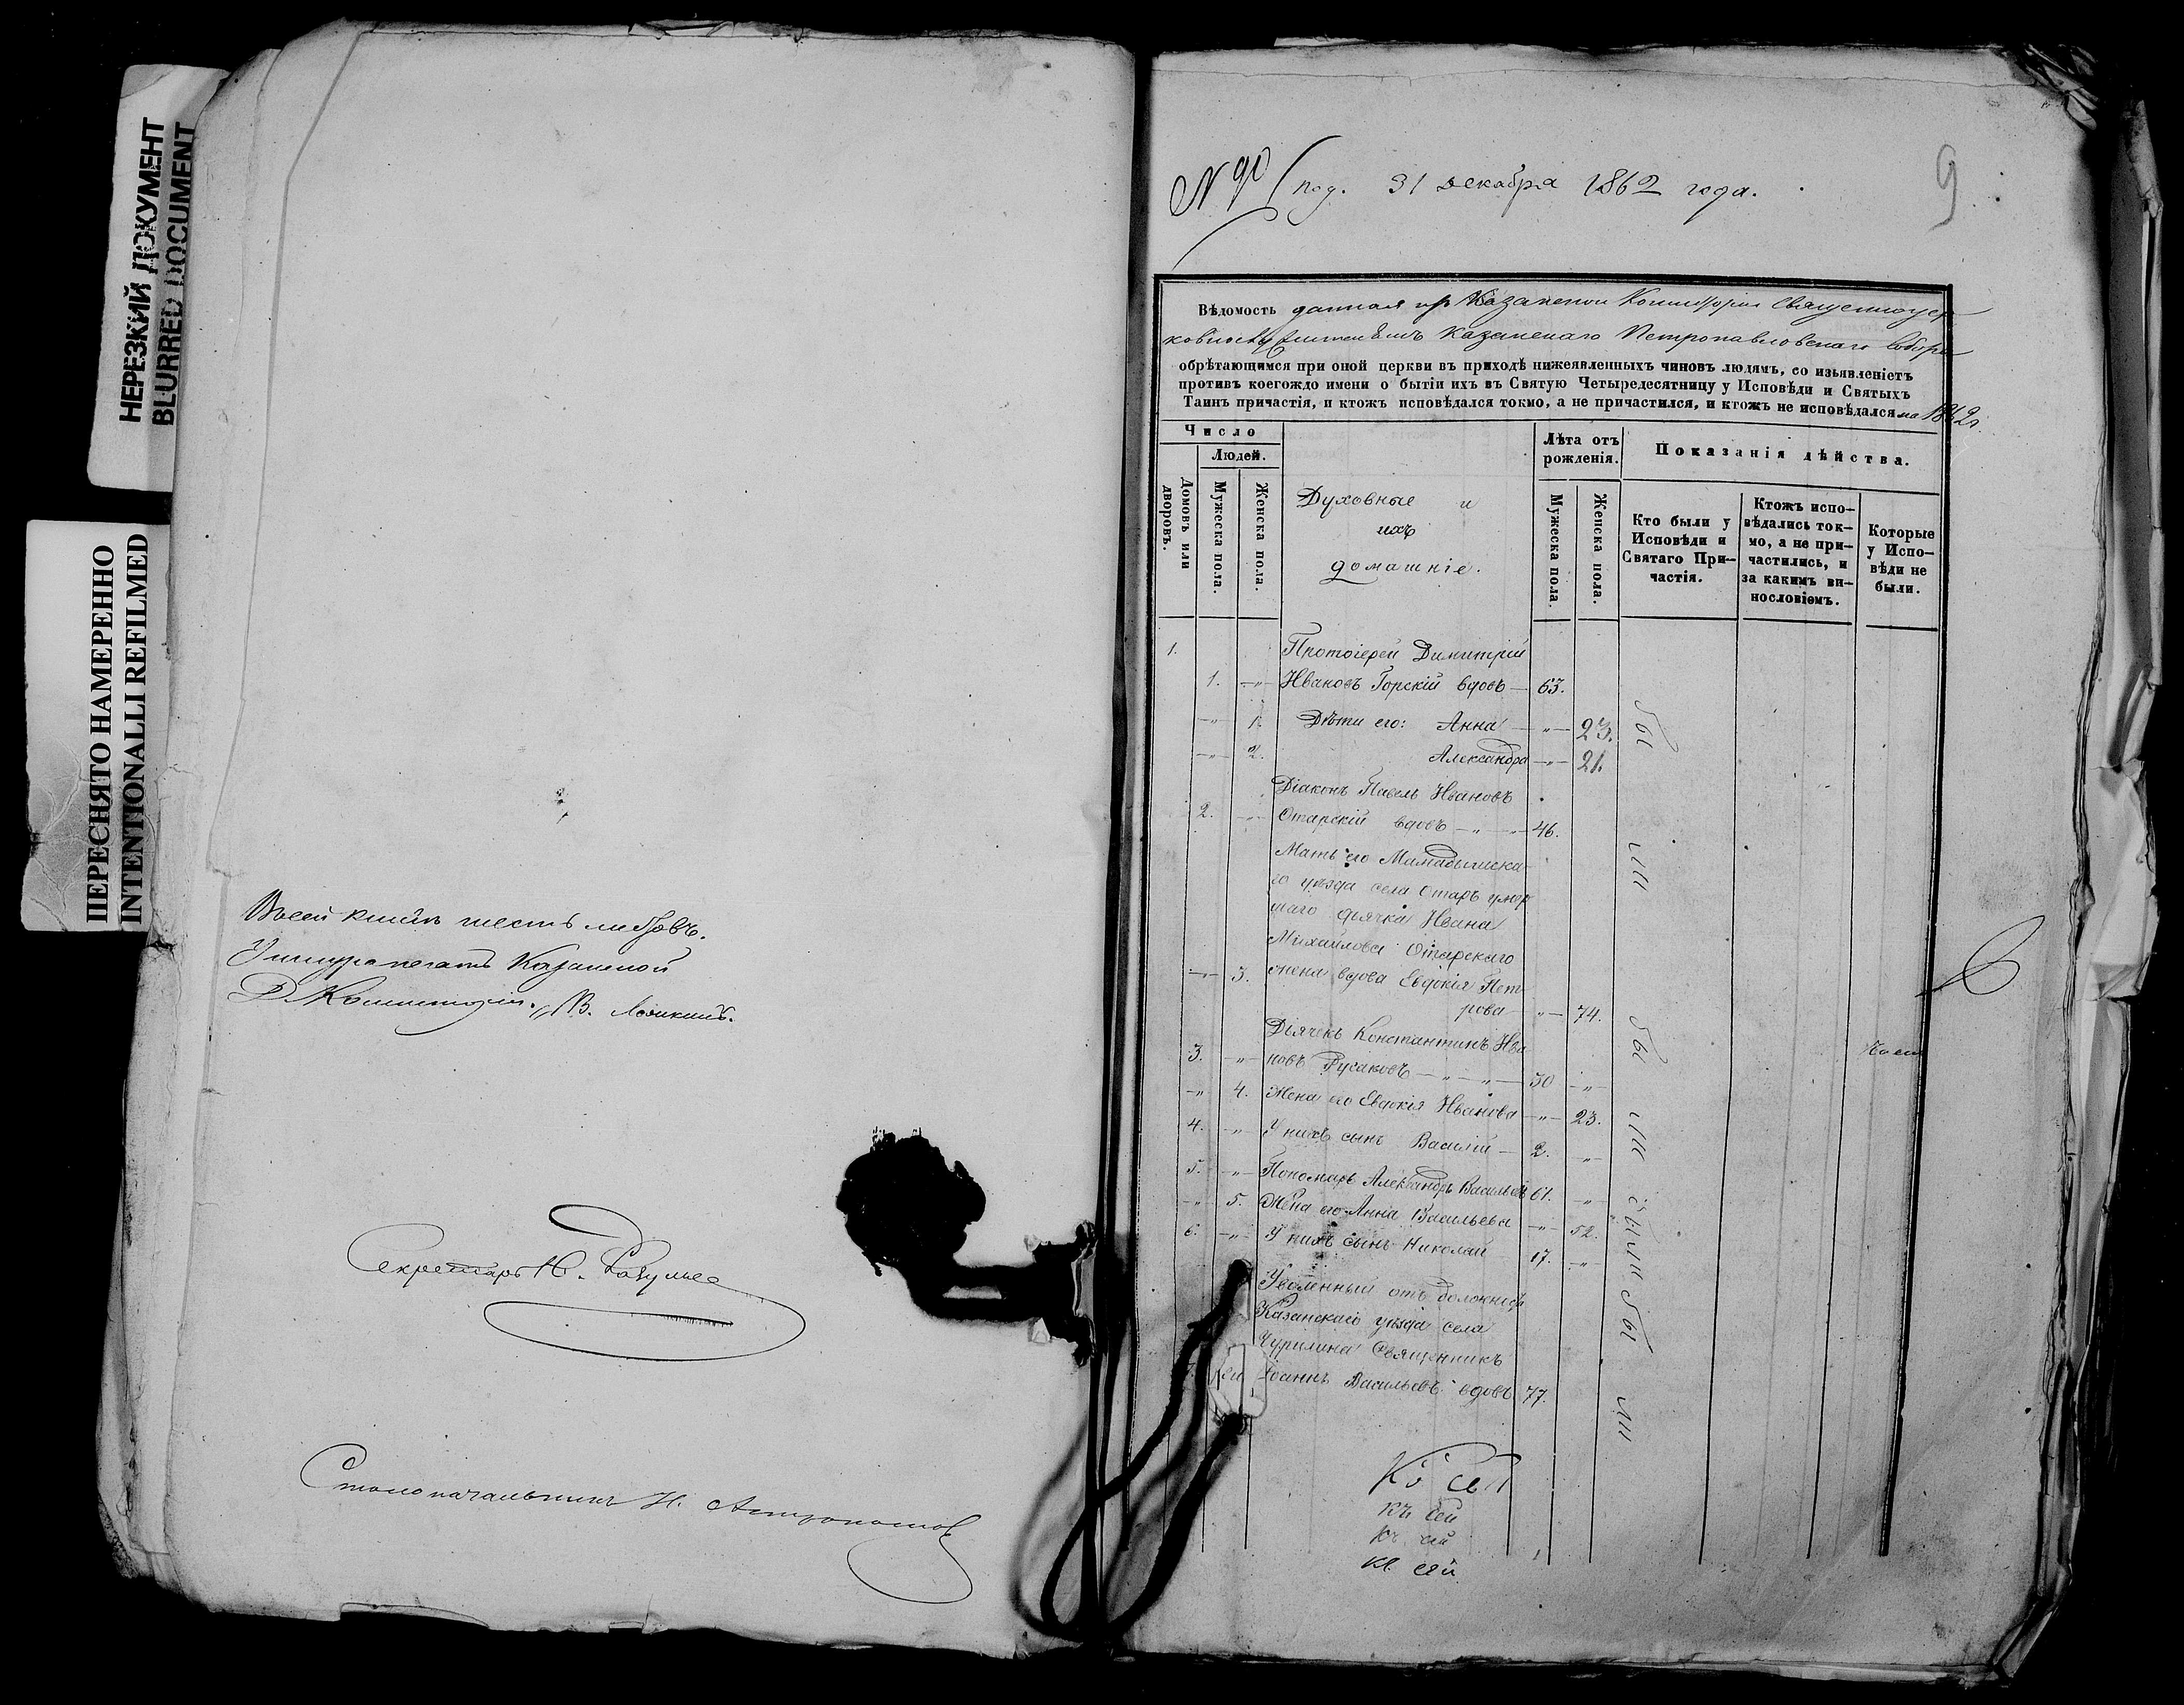 НЕРЕЗКИЙ ДОКУМЕНТ
BLURRED DOCUMENT
ПЕРЕСНЯТО НАМЕРЕННО
INTENTIONALLI REFILMED
шесть листовъ.
Казанской
Д. Консисторіи.
Секретарь
Столоначальникъ Н.
№ 90 под. 31 декабря 1862 года.
9
Вѣдомость данная изъ Казанской Консисторіи Священноцер
ковнослужителямъ Казанскаго Петропавловскаго Собора
обрѣтающимся при оной церкви въ приходѣ нижеявленныхъ чиновъ людямъ, со изъявленіетъ
противъ коегождо имени о бытіи ихъ въ Святую Четыредесятницу у Исповѣди и Святыхъ
Таинъ причастія, и ктожъ исповѣдался токмо, а не причастился, и ктожъ не исповѣдался на 1862 г.
Число
Людей.
Домовъ или дворовъ.
Мужеска пола.
Женска пола.
Духовные и
ихъ
домашніе.
Лѣта отъ
рожденія.
Мужеска пола.
Женска пола.
Показанія дѣйства.
Кто были у
Исповѣди и
Святаго При-
частія.
Ктожъ испо-
вѣдались ток-
мо, а не при-
частились, и
за какимъ ви-
нословіемъ.
Которые
у Испо-
вѣди не
были.
1. Протоіерей Димитрій
1. -"- Ивановъ Горскій вдовъ — 63.
-"- 1. Дѣти его: Анна -"- 23.
-"- 2. Александра -"- 21.
бы
ли
Діаконъ Павелъ Ивановъ
2. -"- Отарскій вдовъ -"- 46.
Мать его Мамадышска
го уѣзда села Отаръ умер
шаго дьячка Ивана
Михайлова Отарскаго
-"- 3. жена вдова Евдокія Пет
рова -"- 74.
Дьячекъ Константинъ Ива
3. -"- новъ Русановъ -"- 30 -"-
-"- 4. Жена его Евдокія Иванова -"- 23.
4. -"- У нихъ сынъ Василій — 2. -"-
бы
ли
5. -"- Пономарь Александръ Васильевъ 61. -"-
-"- 5. Жена его Анна Васильева -"- 52.
6. -"- У нихъ сынъ Николай 17. -"-
были
Уволенный отъ должности
Казанскаго уѣзда села
Чурилина Священникъ
Іоаннъ Васильевъ вдовъ 77.
бы
ли
Къ сей
къ сей
къ сей
къ сей